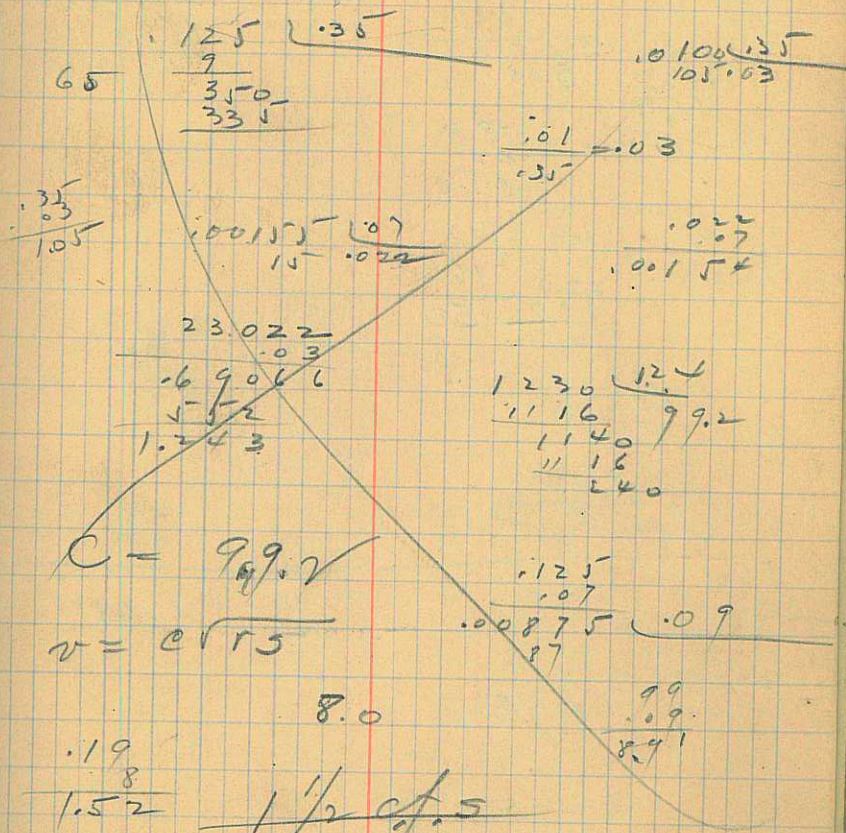 .125 .35
9
65
350
335
.0100 .35
105 .03
.01
.35 = .03
.35
.03
105
.00155 .07
15 .022
.022
.07
.00154
23.022
.03
.69066
552
1.243
1230 12.4
1116 99.2
1140
1116
240
C = 99.2
v = c√rs
.125
.07
.00875 .09
87
8.0
99
.09
8.91
.19
8
1.52
1 1/2 c.f.s